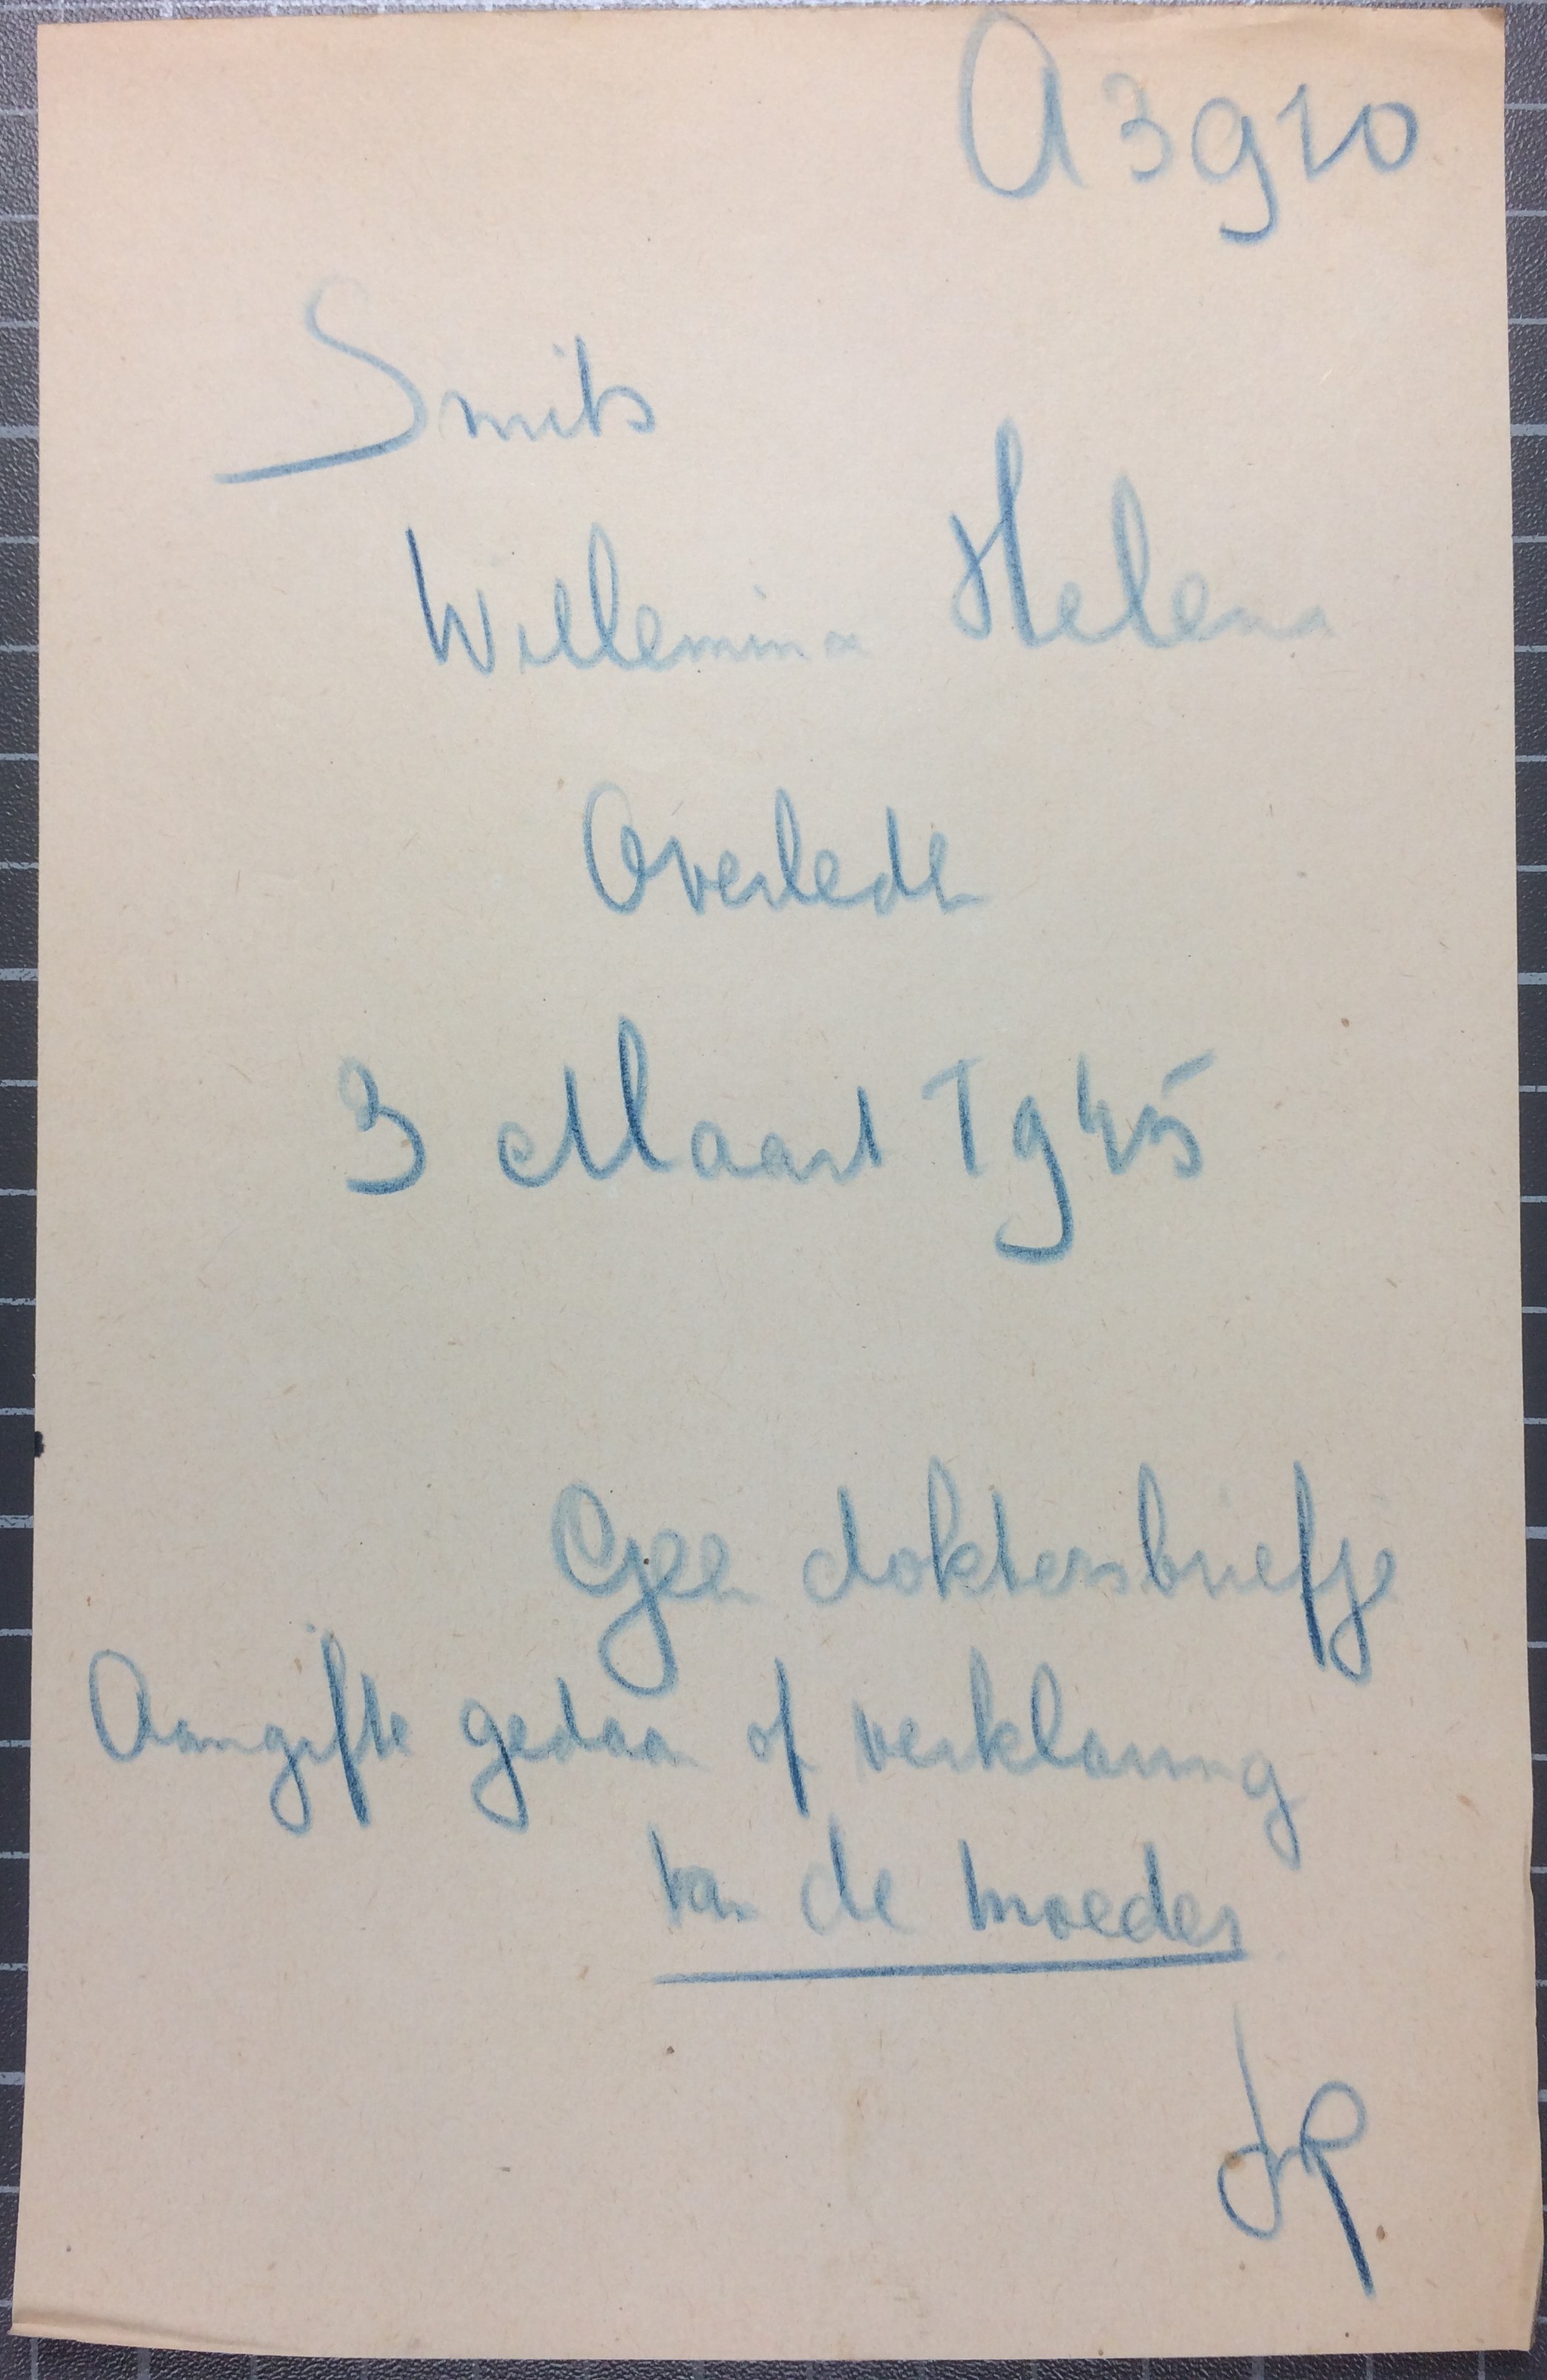 A 3910
Smits
Willemina Helena
Overleden
3 Maart 1945
Geen doktersbriefje
Aangifte gedaan of verklaring
van de moeder